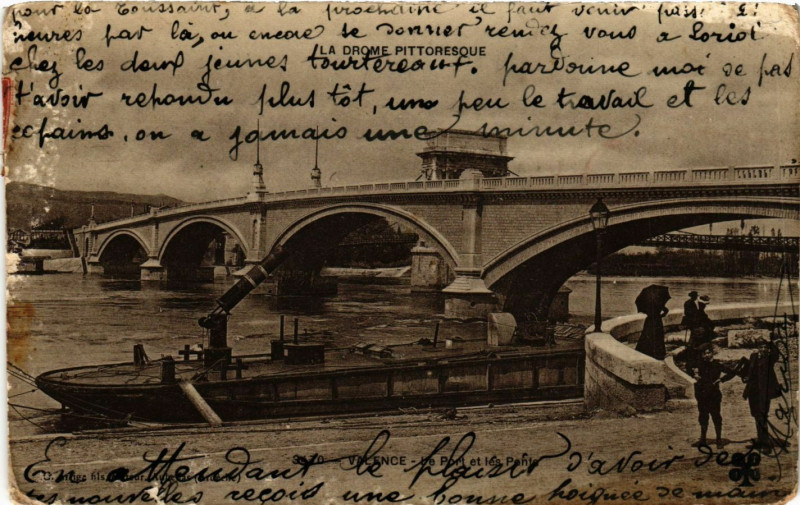 pour la Toussaint, à la prochaine il faut venir
heures par là, ou encore se donner rendez vous a Loriol
LA DROME PITTORESQUE
chez les deux jeunes tourtereaux. pardonne moi de pas
t'avoir repondu plus tôt, un peu le travail et les
copains, on a jamais une minute.
3470 - VALENCE - Le Port et les Ponts
En attendant le plaisir d'avoir de
tes nouvelles reçois une bonne poignée de mains